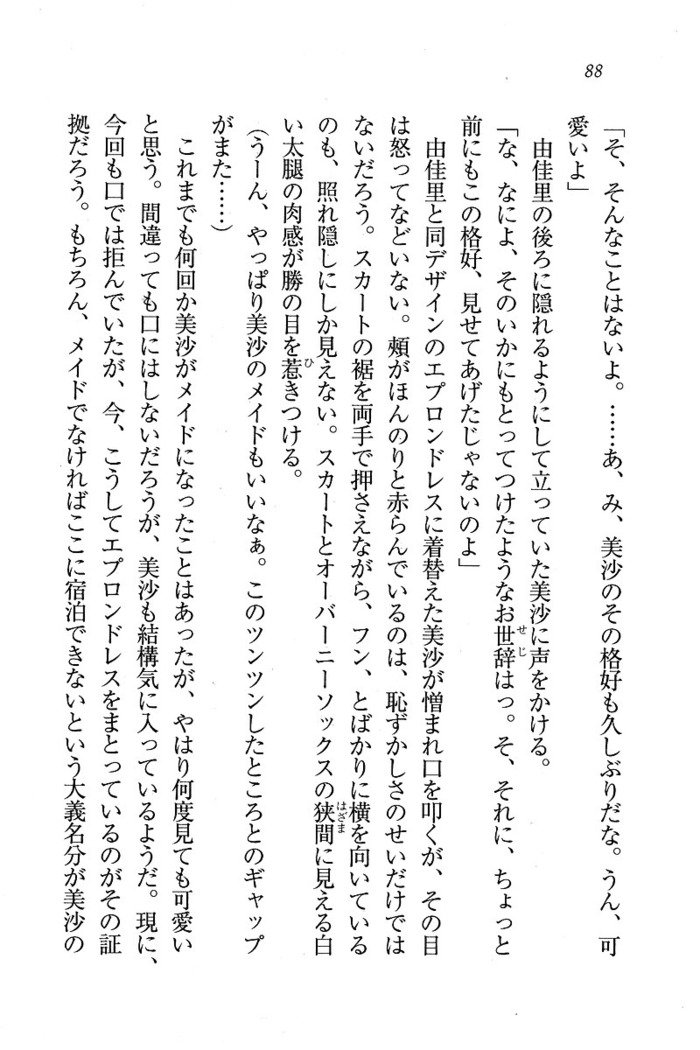 88
「そ、そんなことはないよ。……あ、み、美沙のその格好も久しぶりだな。うん、可
愛いよ」
由佳里の後ろに隠れるようにして立っていた美沙に声をかける。
「な、なによ、そのいかにもとってつけたようなお世辞はっ。そ、それに、ちょっと
前にもこの格好、見せてあげたじゃないのよ」
由佳里と同デザインのエプロンドレスに着替えた美沙が憎まれ口を叩くが、その目
は怒ってなどいない。頰がほんのりと赤らんでいるのは、恥ずかしさのせいだけでは
ないだろう。スカートの裾を両手で押さえながら、フン、とばかりに横を向いている
のも、照れ隠しにしか見えない。スカートとオーバーニーソックスの狭間に見える白
い太腿の肉感が勝の目を惹きつける。
(うーん、やっぱり美沙のメイドもいいなぁ。このツンツンしたところとのギャップ
がまた……)
これまでも何回か美沙がメイドになったことはあったが、やはり何度見ても可愛い
と思う。間違っても口にはしないだろうが、美沙も結構気に入っているようだ。現に、
今回も口では拒んでいたが、今、こうしてエプロンドレスをまとっているのがその証
拠だろう。もちろん、メイドでなければここに宿泊できないという大義名分が美沙の